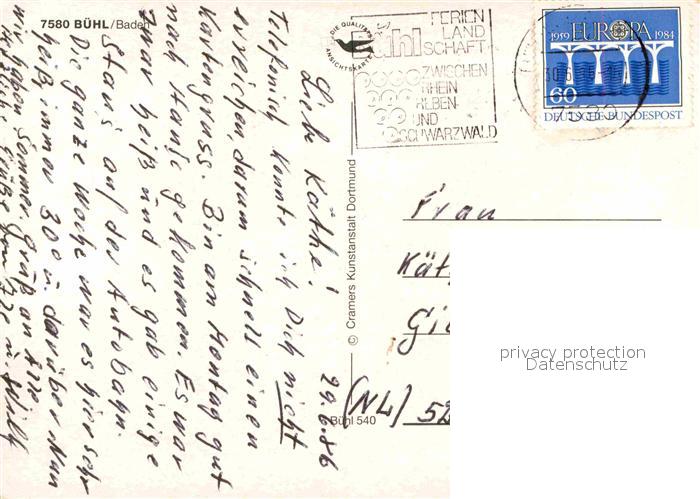 7580 BÜHL/Baden
DIE QUALITÄTS
ANSICHTSKARTE
Bühl
FERIEN
LAND
SCHAFT
ZWISCHEN
RHEIN
REBEN
UND
SCHWARZWALD
1959 EUROPA 1984
60
DEUTSCHE BUNDESPOST
© Cramers Kunstanstalt Dortmund
Bühl 540
29.6.86
Liebe Käthe!
Telefonisch konnte ich Dich nicht
erreichen, darum schnell einen
Kartengruss. Bin am Montag gut
nach Hause gekommen. Es war
zwar heiß und es gab einige
Stau's auf der Autobahn.
Die ganze Woche war es hier sehr
heiß immer 30° u. darüber. Nun
wir haben Sommer. Gruß an
Herzliche Grüße u. Willy
Frau
Kät
Gi
(NL) 52
privacy protection
Datenschutz